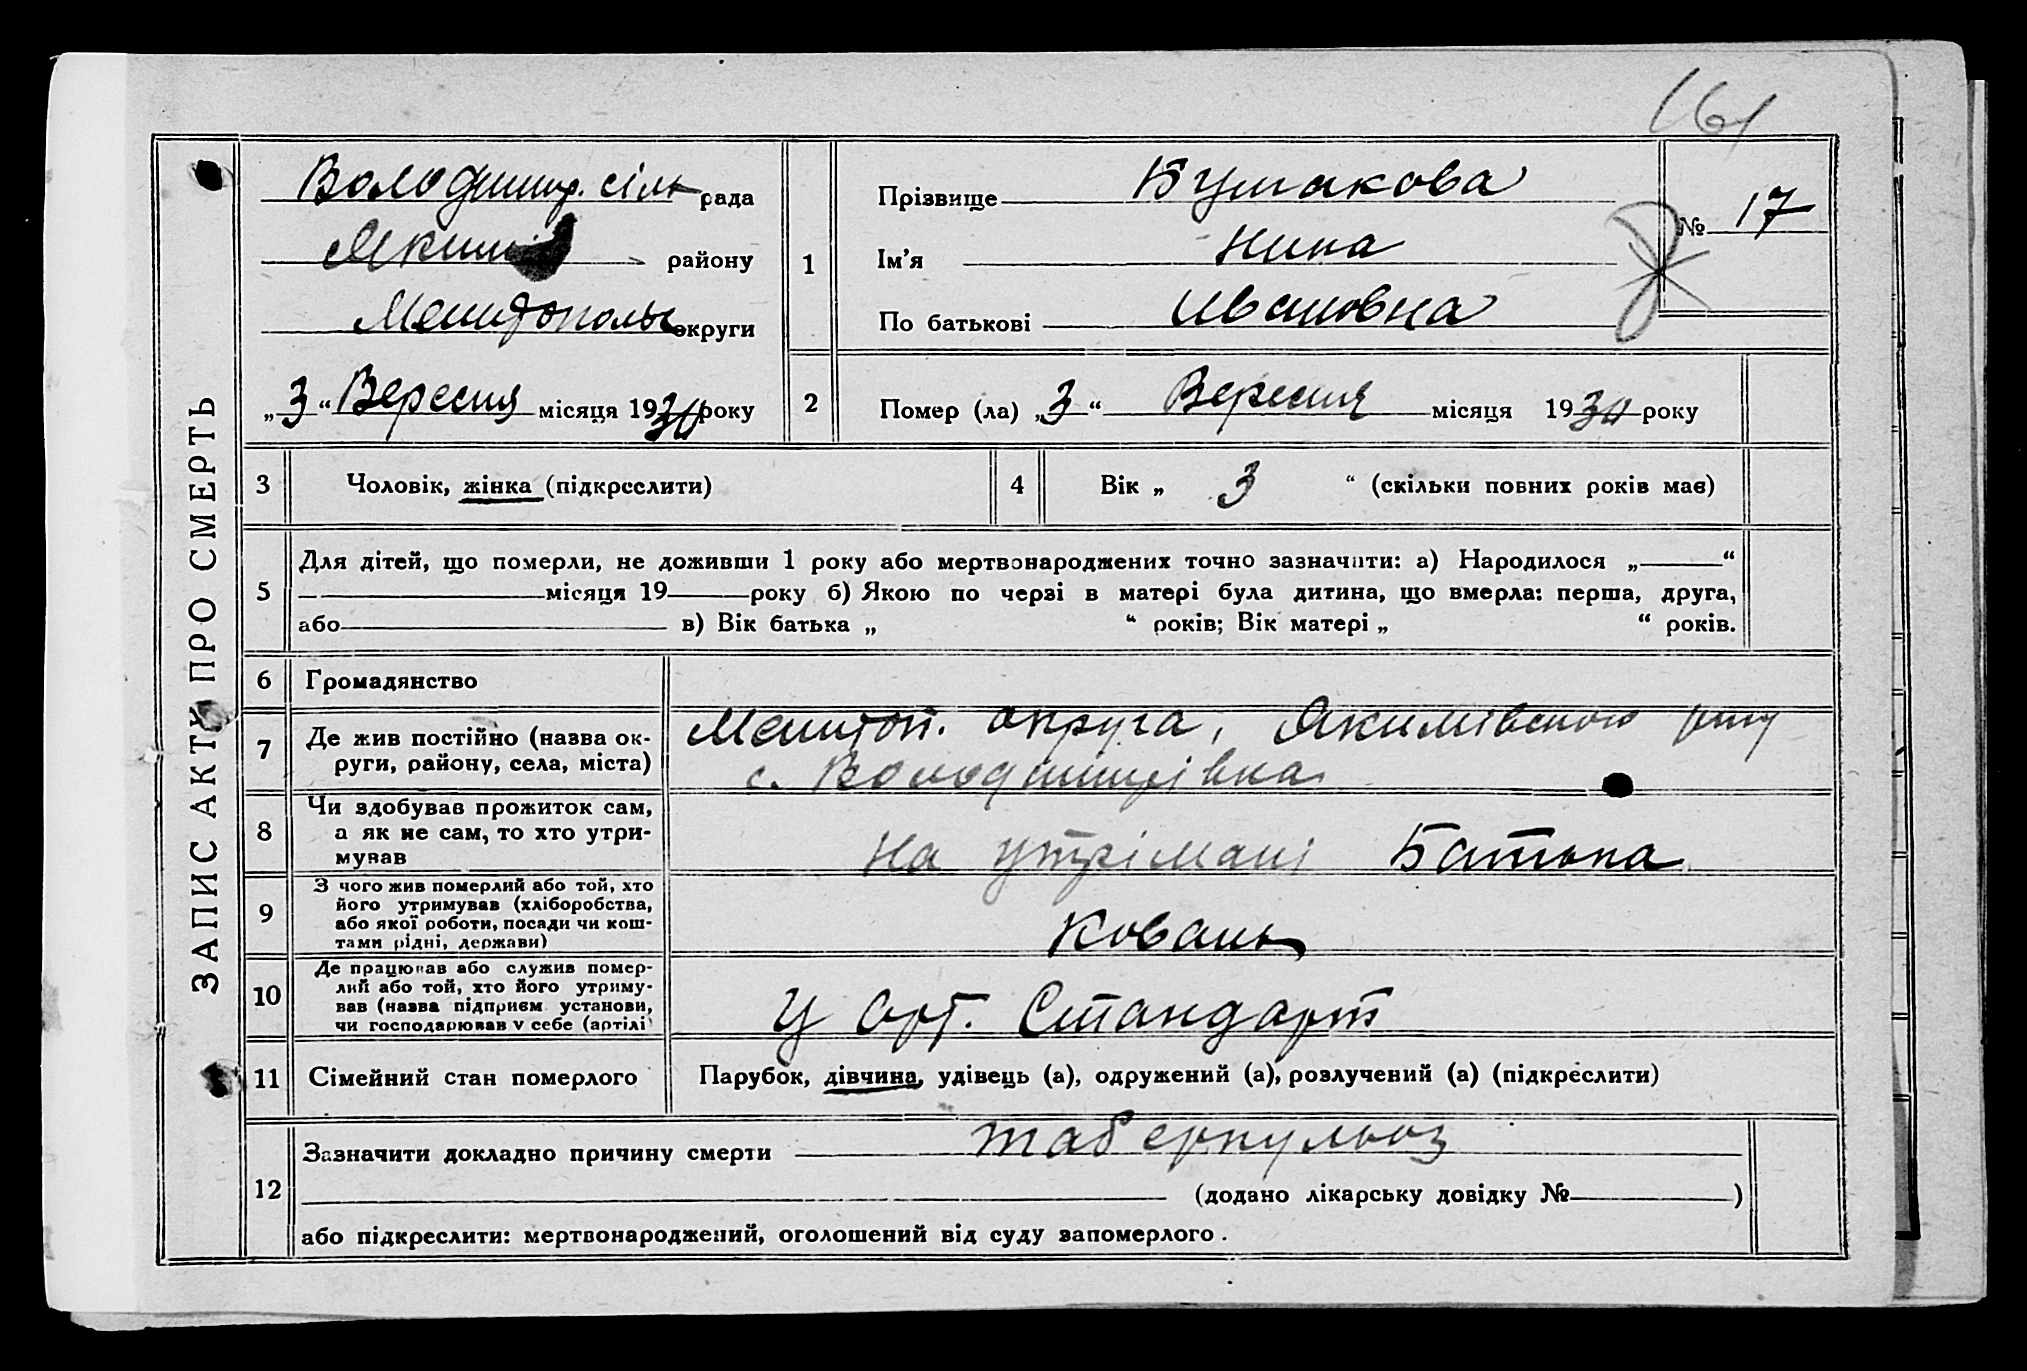 161
ЗАПИС АКТУ ПРО СМЕРТЬ
Володимир. сіль рада
Якимів району
Мелитополь округи
„3“ Вересня місяця 1930 року
1
Прізвище Бушакова
Ім'я Нина
По батькові Ивановна
№ 17
2
Помер (ла) „3“ Вересня місяця 1930 року
3 Чоловік, жінка (підкреслити)
4 Вік „ 3 “ (скільки повних років має)
5 Для дітей, що померли, не доживши 1 року або мертвонароджених точно зазначити: а) Народилося „ “
місяця 19 року б) Якою по черзі в матері була дитина, що вмерла: перша, друга,
або в) Вік батька „ “ років; Вік матері „ “ років.
6 Громадянство
7 Де жив постійно (назва ок-
руги, району, села, міста)
Мелитоп. округа, Якимівського рну
с. Володимирівка
8 Чи здобував прожиток сам,
а як не сам, то хто утри-
мував
На утрімані Батька
9 З чого жив померлий або той, хто
його утримував (хліборобства,
або якої роботи, посади чи кош-
тами рідні, держави)
Коваль
10 Де працював або служив помер-
лий або той, хто його утриму-
вав (назва підприєм. установи,
чи господарював у себе (артілі
У Арт. Стандарт
11 Сімейний стан померлого
Парубок, дівчина, удівець (а), одружений (а), розлучений (а) (підкреслити)
12 Зазначити докладно причину смерти таберкульоз
(додано лікарську довідку № )
або підкреслити: мертвонароджений, оголошений від суду запомерлого.